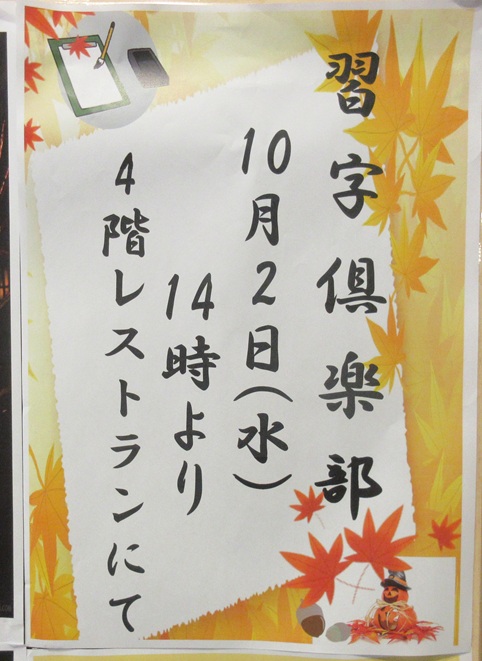 習字倶楽部
10月2日(水)
14時より
4階レストランにて